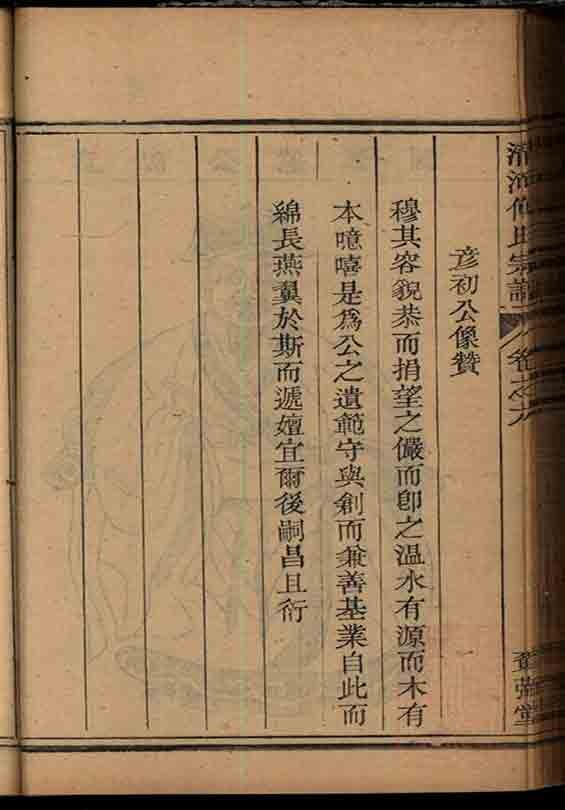 清河傅氏宗譜
卷之六
彥初公像贊
穆其容貌恭而捐望之儼而卽之温水有源而木有
本噫嘻是為公之遺範守與創而兼善基業自此而
綿長燕翼於斯而遞嬗宜爾後嗣昌且衍
堂